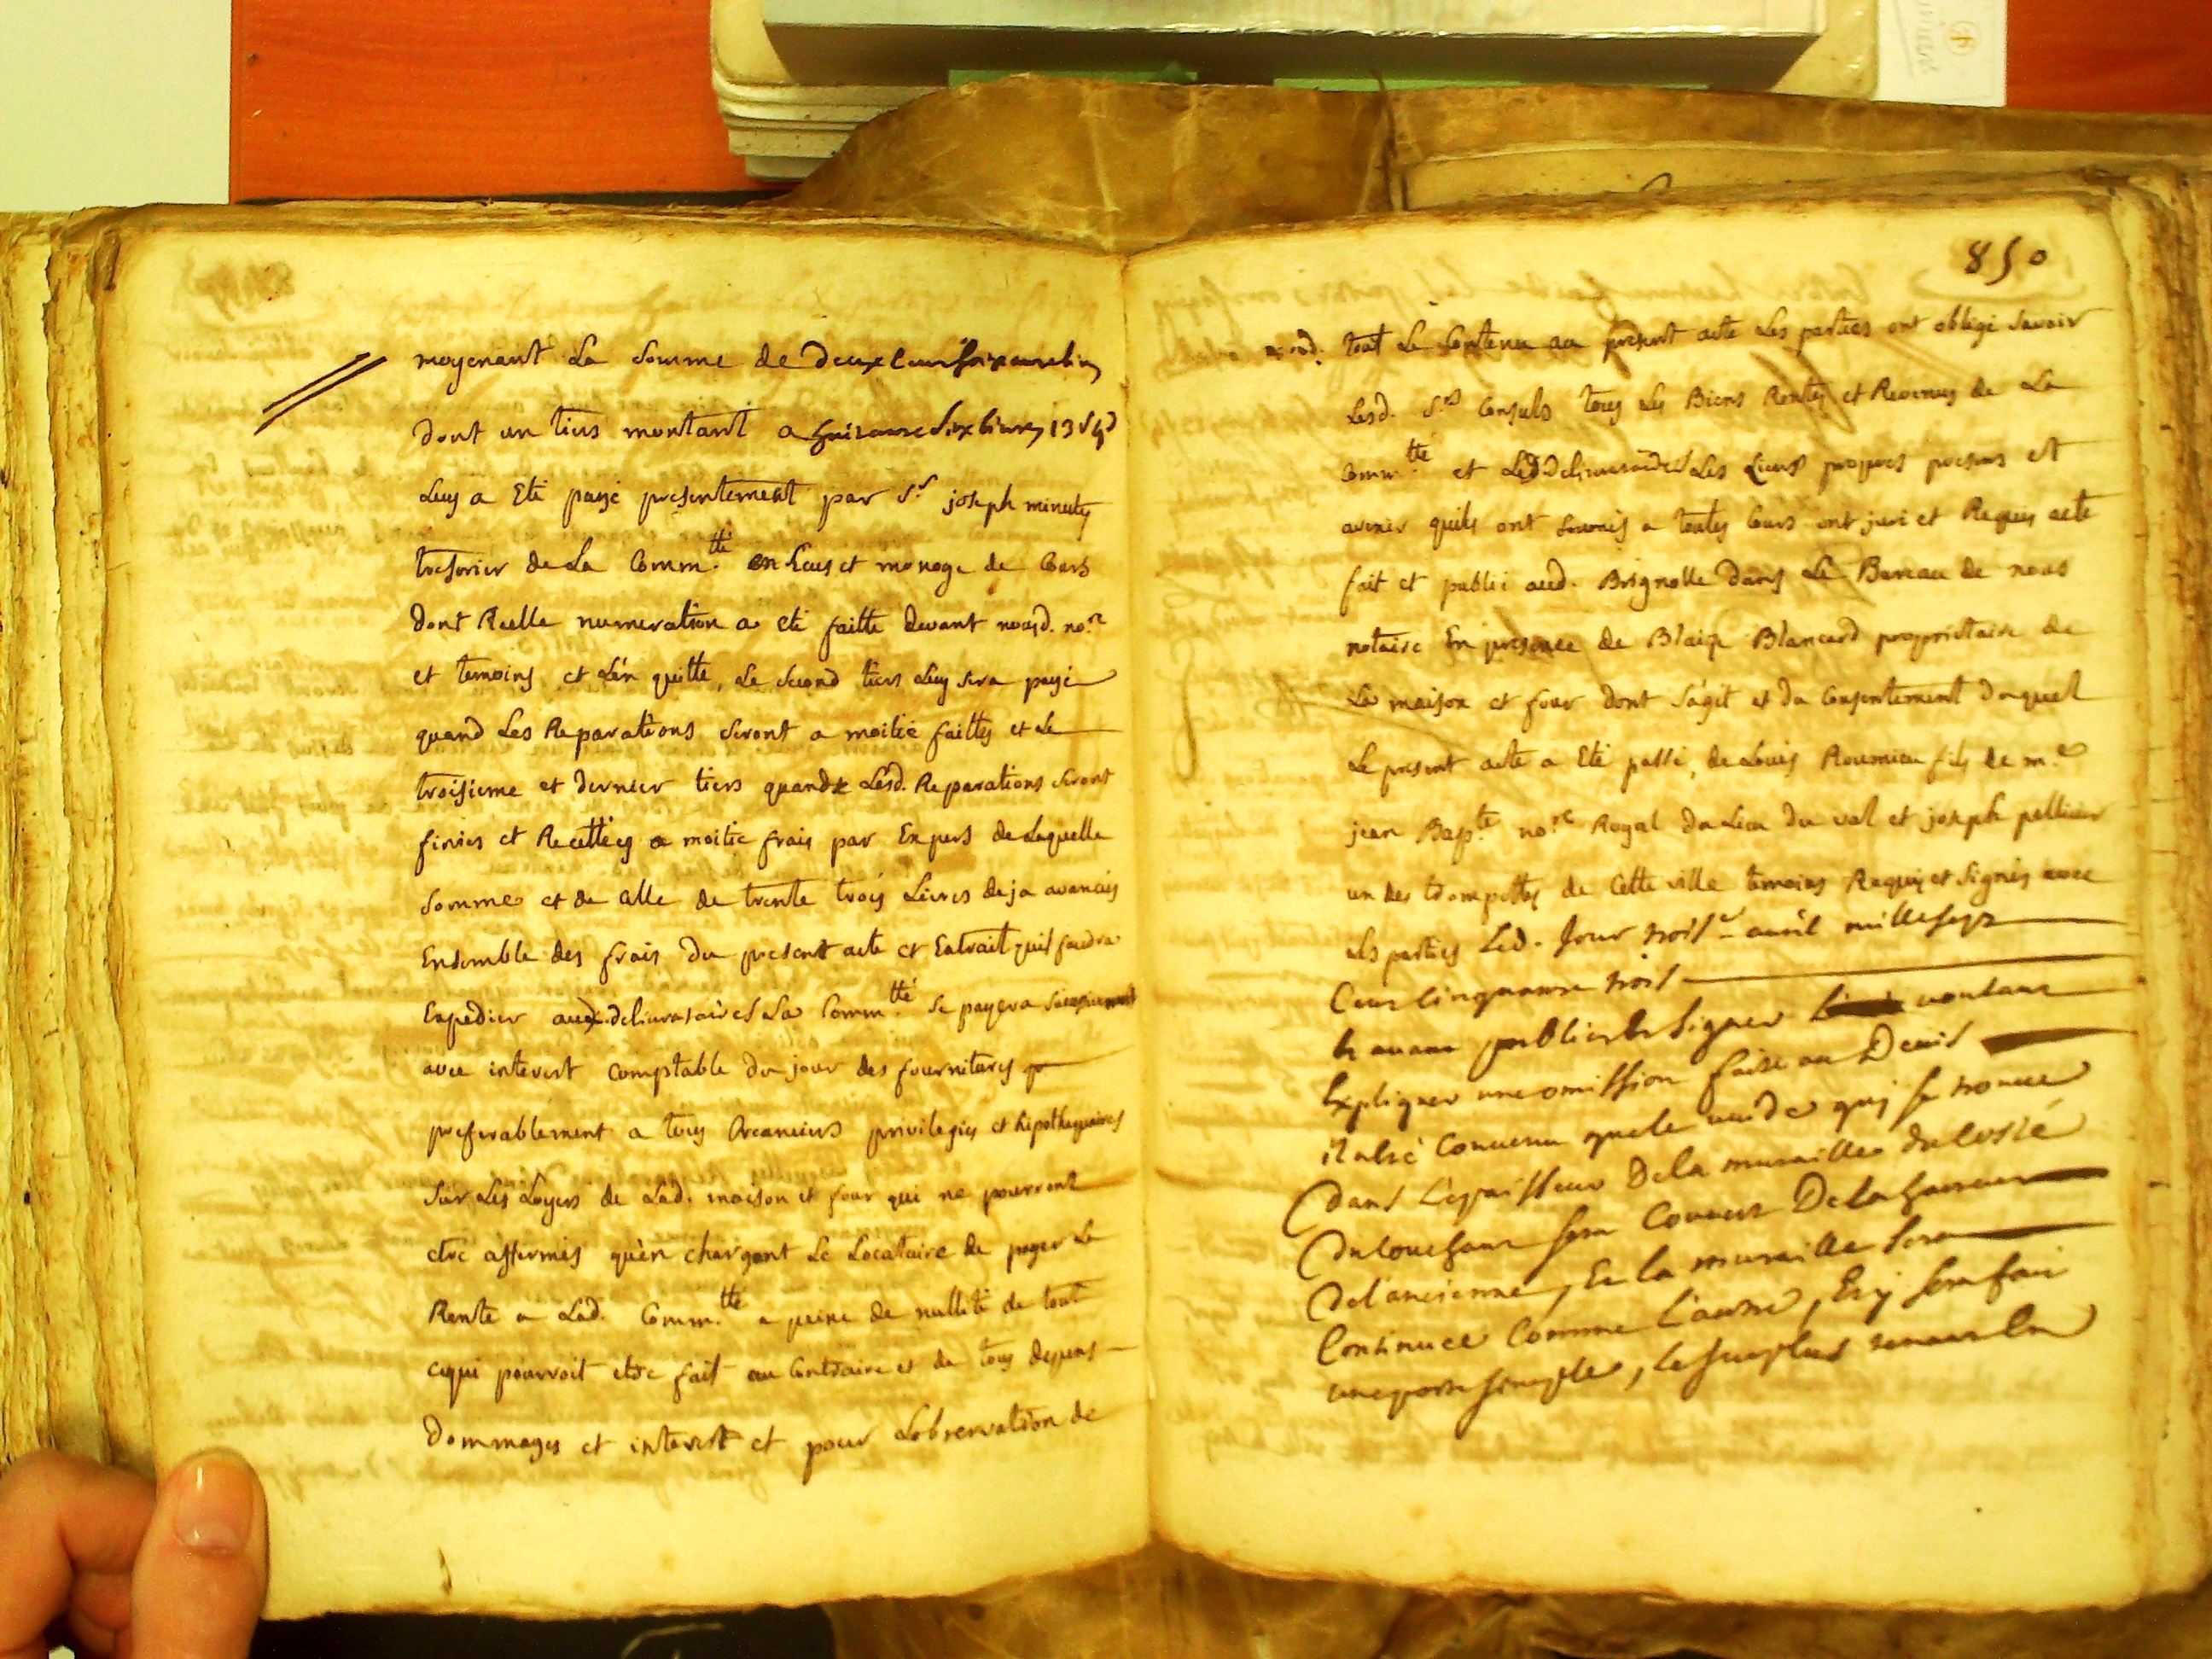 moyenant La Somme de deux Cent soixante Liv
dont un tiers montant a huitante Six livres 13 s 4 d
Luy a Eté payé presentement par Sr joseph minuty
tresorier de La Comm.tté en Ecus et monoye de Cours
dont Reelle numeration a eté faitte devant nousd. no.re
et temoins et L'en quitte, Le second tiers Luy sera payé
quand Les Reparations seront a moitié faittes et Le
troisieme et dernier tiers quand Lesd. Reparations seront
finies et Recettées a moitié frais par Expers de Laquelle
somme et de Celle de trente trois Livres deja avancées
Ensemble des frais du present acte et Extrait quil faudra
Expedier auxd. delivrataires La Comm.tté se payera
avec interest Comptable du jour des fournitures
preferablement a tous Creanciers privilegiés et hipothequaires
sur Les Loyers de Lad. maison et four qui ne pourront
etre affermés qu'en chargant Le Locataire de payer La
Rente a Lad. Comm.tté a peine de nullité de tout
cequi pourroit etre fait au Contraire et de tous depens
dommages et interest et pour L'observation de
850
tout Le Contenu au present acte Les parties ont obligé savoir
Lesd. Srs Consuls tous Les Biens Rentes et Revenus de La
Comm.tté et Lesd. delivrataires Les Liens propres presens et
avenir quils ont soumis a toutes Cours ont juré et Requis acte
fait et publié aud. Brignolle dans Le Bureau de nous
notaire En presence de Blaize Blancard proprietaire de
La maison et four dont s'agit et du Consentement duquel
Le present acte a Eté passé, de Louis Roumieu fils de m.e
jean Bap.te no.re Royal du Lieu du val et joseph pellicier
un des trompettes de Cette ville temoins Requis et signés avec
Les parties Led. Jour trois.e avril mille sept
Cent Cinquante trois
Et avant publier et signer voulant
Expliquer une omission faite au Devis
il a eté Convenu que le vuide qui se trouve
Dans L'epaisseur De la muraille du Costé
Du Couchant sera Couvert De la hauteur
De l'ancienne, Et la muraille sera
Continuée Comme L'autre, Et y sera fait
une porte simple, Le surplus